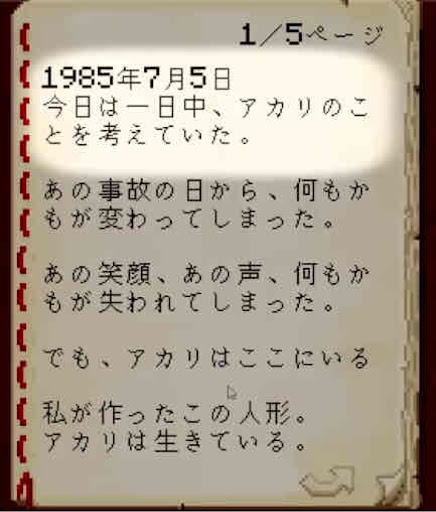 1／5ページ
1985年7月5日
今日は一日中、アカリのこ
とを考えていた。
あの事故の日から、何もか
もが変わってしまった。
あの笑顔、あの声、何もか
もが失われてしまった。
でも、アカリはここにいる
私が作ったこの人形。
アカリは生きている。